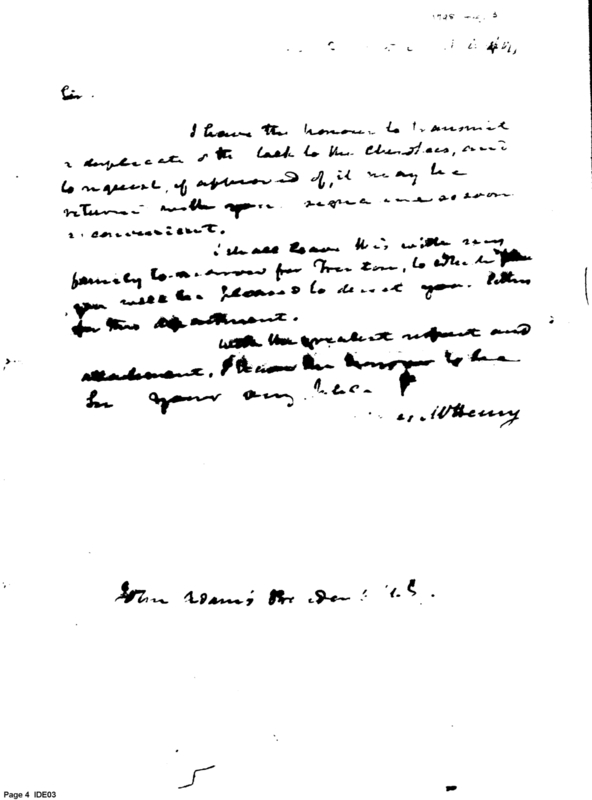 Sir.
I have the honour to transmit
a duplicate of the talk to the Cherokees, and
to request, if approved of, it may be
returned with your signature as soon
as convenient.
I shall leave this with my
family to-morrow for Trenton, to which place
you will be pleased to direct your letters
for this department.
With the greatest respect and
attachment, I have the honour to be
Sir your
McHenry
John Adams President U.S.
Page 4 IDE03